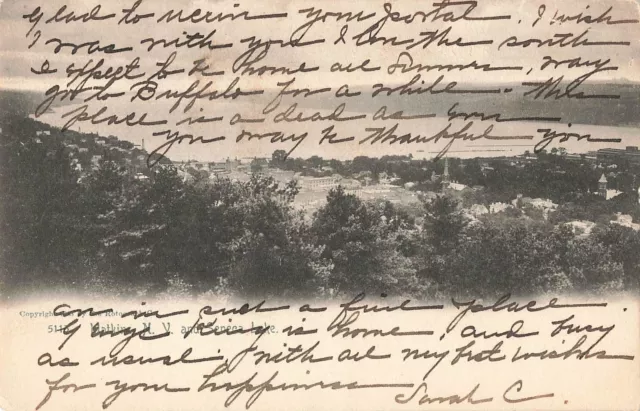 Glad to receive your postal. I wish
I was with you I love the south
I expect to be home all summer, may
go to Buffalo for a while. This
place is a dead as ever
you may be thankful you
are in such a fine place.
is home, and busy
as usual, with all my best wishes
for your happiness
Sarah C.
Copyright
Watkins, N. Y. and Seneca Lake.